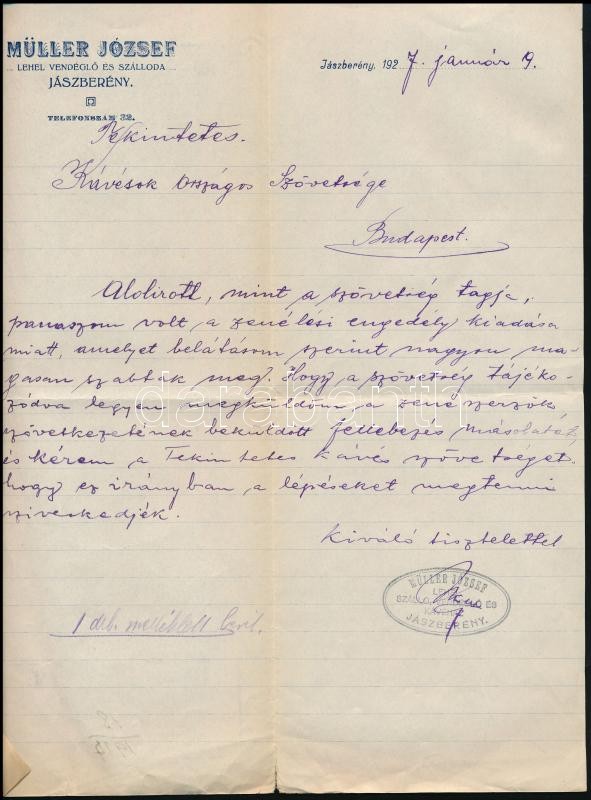 MÜLLER JÓZSEF
LEHEL VENDÉGLŐ ÉS SZÁLLODA
JÁSZBERÉNY.
TELEFONSZÁM 32.
Jászberény, 1927. január 9.
Tekintetes.
Kávésok Országos Szövetsége
Budapest.
Alolirott, mint a szövetség tagja,
panaszom volt a zenélési engedély kiadása
miatt, amelyet belátásom szerint nagyon ma-
gasan szabták meg. Hogy a szövetség tájéko-
zódva legyen megküldöm a zene szerzők
szövetkezetének beküldött fellebezés másolatát,
és kérem a Tekintetes Kávés szövetséget,
hogy ez irányban a lépéseket megtenni
sziveskedjék.
Kiváló tisztelettel
MÜLLER JÓZSEF
SZÁLLO ÉS
JÁSZBERÉNY.
1 drb. mellékelt levél.
darabanth